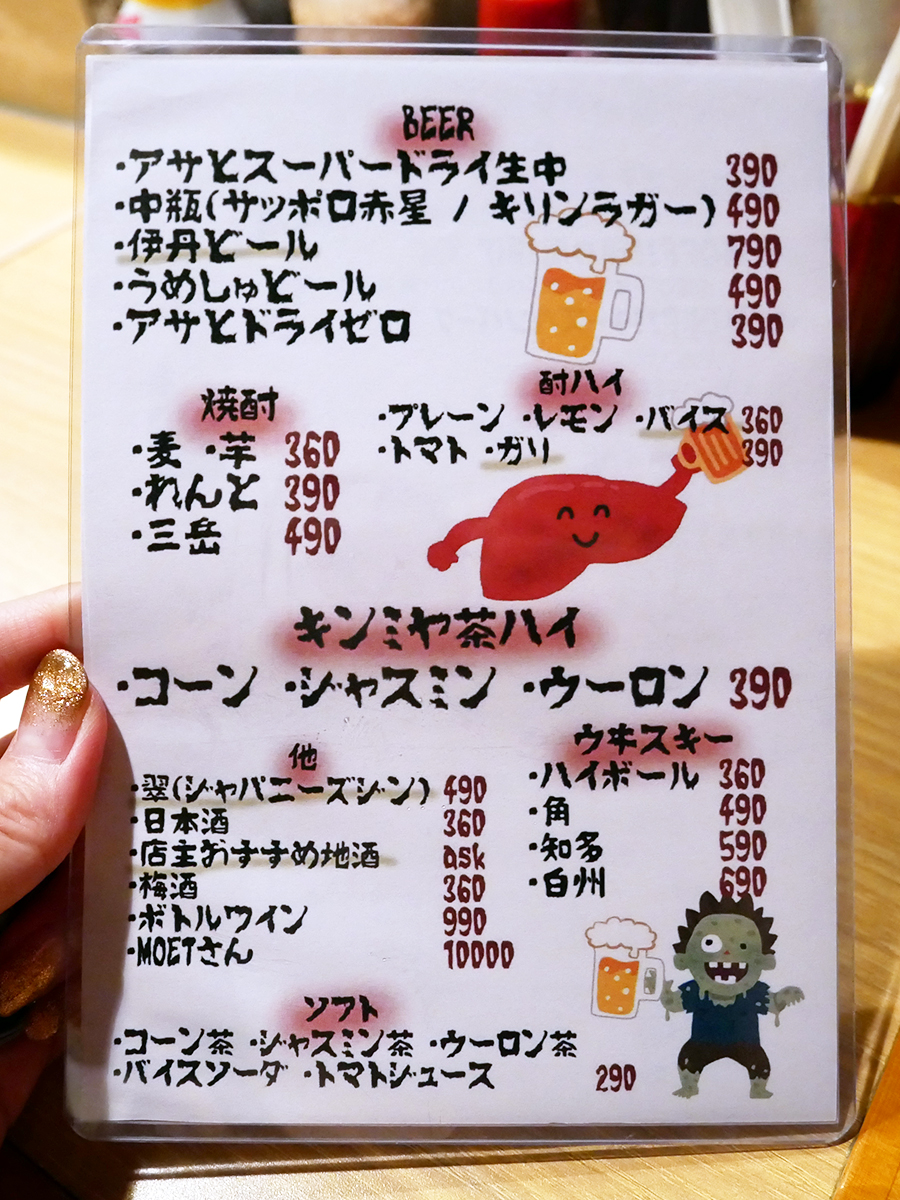 BEER
・アサヒスーパードライ生中 390
・中瓶(サッポロ赤星 / キリンラガー) 490
・伊丹ビール 790
・うめしゅビール 490
・アサヒドライゼロ 390
焼酎
・麦 ・芋 360
・れんと 390
・三岳 490
酎ハイ
・プレーン ・レモン ・バイス 360
・トマト ・ガリ 390
キンミヤ茶ハイ
・コーン ・ジャスミン ・ウーロン 390
他
・翠(ジャパニーズジン) 490
・日本酒 360
・店主おすすめ地酒 ask
・梅酒 360
・ボトルワイン 990
・MOETさん 10000
ウヰスキー
・ハイボール 360
・角 490
・知多 590
・白州 690
ソフト
・コーン茶 ・ジャスミン茶 ・ウーロン茶
・バイスソーダ ・トマトジュース 290